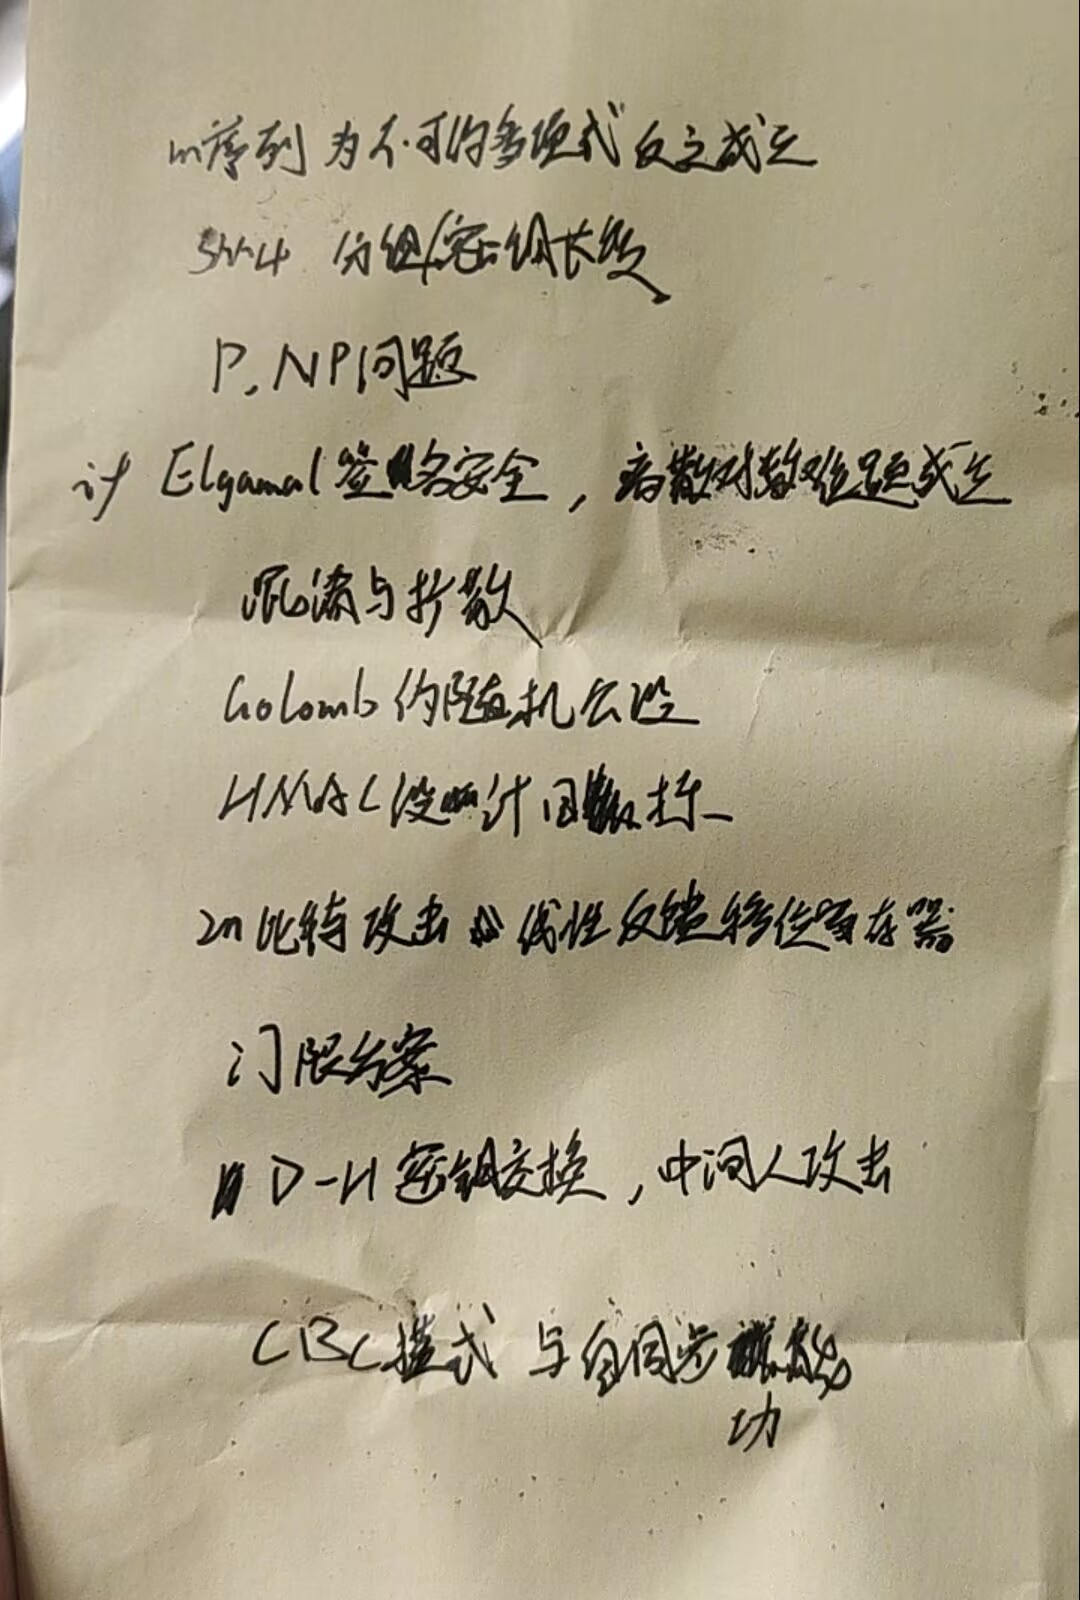 m序列 为不可约多项式 反之成立
SM4 分组/密钥长度
P.NP问题
计 Elgamal 签名安全,离散对数难题成立
混淆与扩散
Golomb 伪随机公设
HMAC 设计目标
2n比特攻击 线性反馈移位寄存器
门限方案
D-H 密钥交换,中间人攻击
CBC模式 与自同步
功